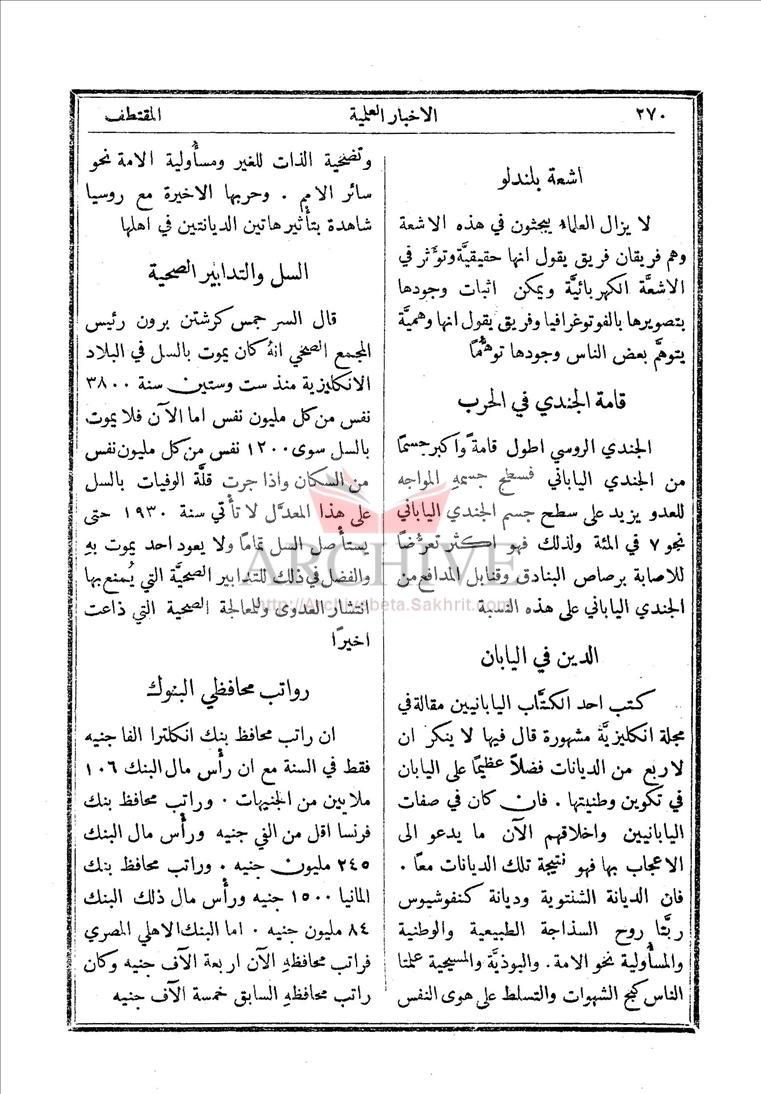 ٢٧٠
الاخبار العلمية
المقتطف
اشعة بلندلو
لا يزال العلماء يبحثون في هذه الاشعة
وهم فريقان فريق يقول انها حقيقيَّة وتؤثر في
الاشعَّة الكهربائيَّة ويمكن اثبات وجودها
بتصويرها بالفوتوغرافيا وفريق يقول انها وهميَّة
يتوهَّم بعض الناس وجودها توهُّمًا
قامة الجندي في الحرب
الجندي الروسي اطول قامةً واكبر جسمًا
من الجندي الياباني فسطح جسمهِ المواجه
للعدو يزيد على سطح جسم الجندي الياباني
نحو ٧ في المئة ولذلك فهو اكثر تعرُّضًا
للاصابة برصاص البنادق وقنابل المدافع من
الجندي الياباني على هذه النسبة
الدين في اليابان
كتب احد الكتَّاب اليابانيين مقالة في
مجلة انكليزيَّة مشهورة قال فيها لا ينكر ان
لاربع من الديانات فضلاً عظيمًا على اليابان
في تكوين وطنيتها . فان كان في صفات
اليابانيين واخلاقهم الآن ما يدعو الى
الاعجاب بها فهو نتيجة تلك الديانات معًا .
فان الديانة الشنتوية وديانة كنفوشيوس
ربَّتا روح السذاجة الطبيعية والوطنية
والمسأولية نحو الامة . والبوذيَّة والمسيحية علمتا
الناس كبح الشهوات والتسلط على هوى النفس
وتضحية الذات للغير ومسأولية الامة نحو
سائر الامم . وحربها الاخيرة مع روسيا
شاهدة بتأثير هاتين الديانتين في اهلها
السل والتدابير الصحية
قال السر جمس كرشتن برون رئيس
المجمع الصحي انهُ كان يموت بالسل في البلاد
الانكليزية منذ ست وستين سنة ٣٨٠٠
نفس من كل مليون نفس اما الآن فلا يموت
بالسل سوى ١٢٠٠ نفس من كل مليون نفس
من السكان واذا جرت قلَّة الوفيات بالسل
على هذا المعدَّل لا تأتي سنة ١٩٣٠ حتى
يستأصل السل تمامًا ولا يعود احد يموت بهِ
والفضل في ذلك للتدابير الصحيَّة التي يُمنع بها
انتشار العدوى وللمعالجة الصحية التي ذاعت
اخيرًا
رواتب محافظي البنوك
ان راتب محافظ بنك انكلترا الفا جنيه
فقط في السنة مع ان رأس مال البنك ١٠٦
ملايين من الجنيهات . وراتب محافظ بنك
فرنسا اقل من الفي جنيه ورأس مال البنك
٢٤٥ مليون جنيه . وراتب محافظ بنك
المانيا ١٥٠٠ جنيه ورأس مال ذلك البنك
٨٤ مليون جنيه . اما البنك الاهلي المصري
فراتب محافظهِ الآن اربعة آلاف جنيه وكان
راتب محافظهِ السابق خمسة آلاف جنيه
ARCHIVE
http://Archivebeta.Sakhrit.com